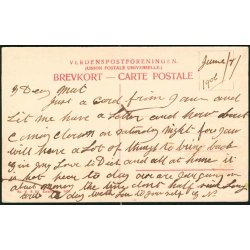 VERDENSPOSTFORENINGEN.
(UNION POSTALE UNIVERSELLE.)
BREVKORT — CARTE POSTALE
June / 8 /
1906
Dear
Just a Card from you and
Let me have a Letter and how about
coming down on Saturday Night for you
will have a Lot of things to bring back
give my Love to Dad and all at home it
is hot here to day are you going on
about money the they don't half
to day with Love to your self